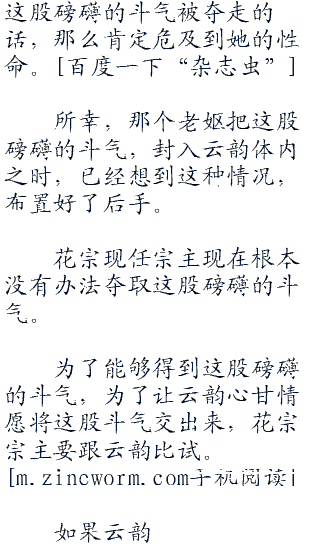 这股磅礴的斗气被夺走的
话，那么肯定危及到她的性
命。[百度一下“杂志虫”]
所幸，那个老妪把这股
磅礴的斗气，封入云韵体内
之时，已经想到这种情况，
布置好了后手。
花宗现任宗主现在根本
没有办法夺取这股磅礴的斗
气。
为了能够得到这股磅礴
的斗气，为了让云韵心甘情
愿将这股斗气交出来，花宗
宗主要跟云韵比试。
[m.zincworm.com手机阅读i
如果云韵